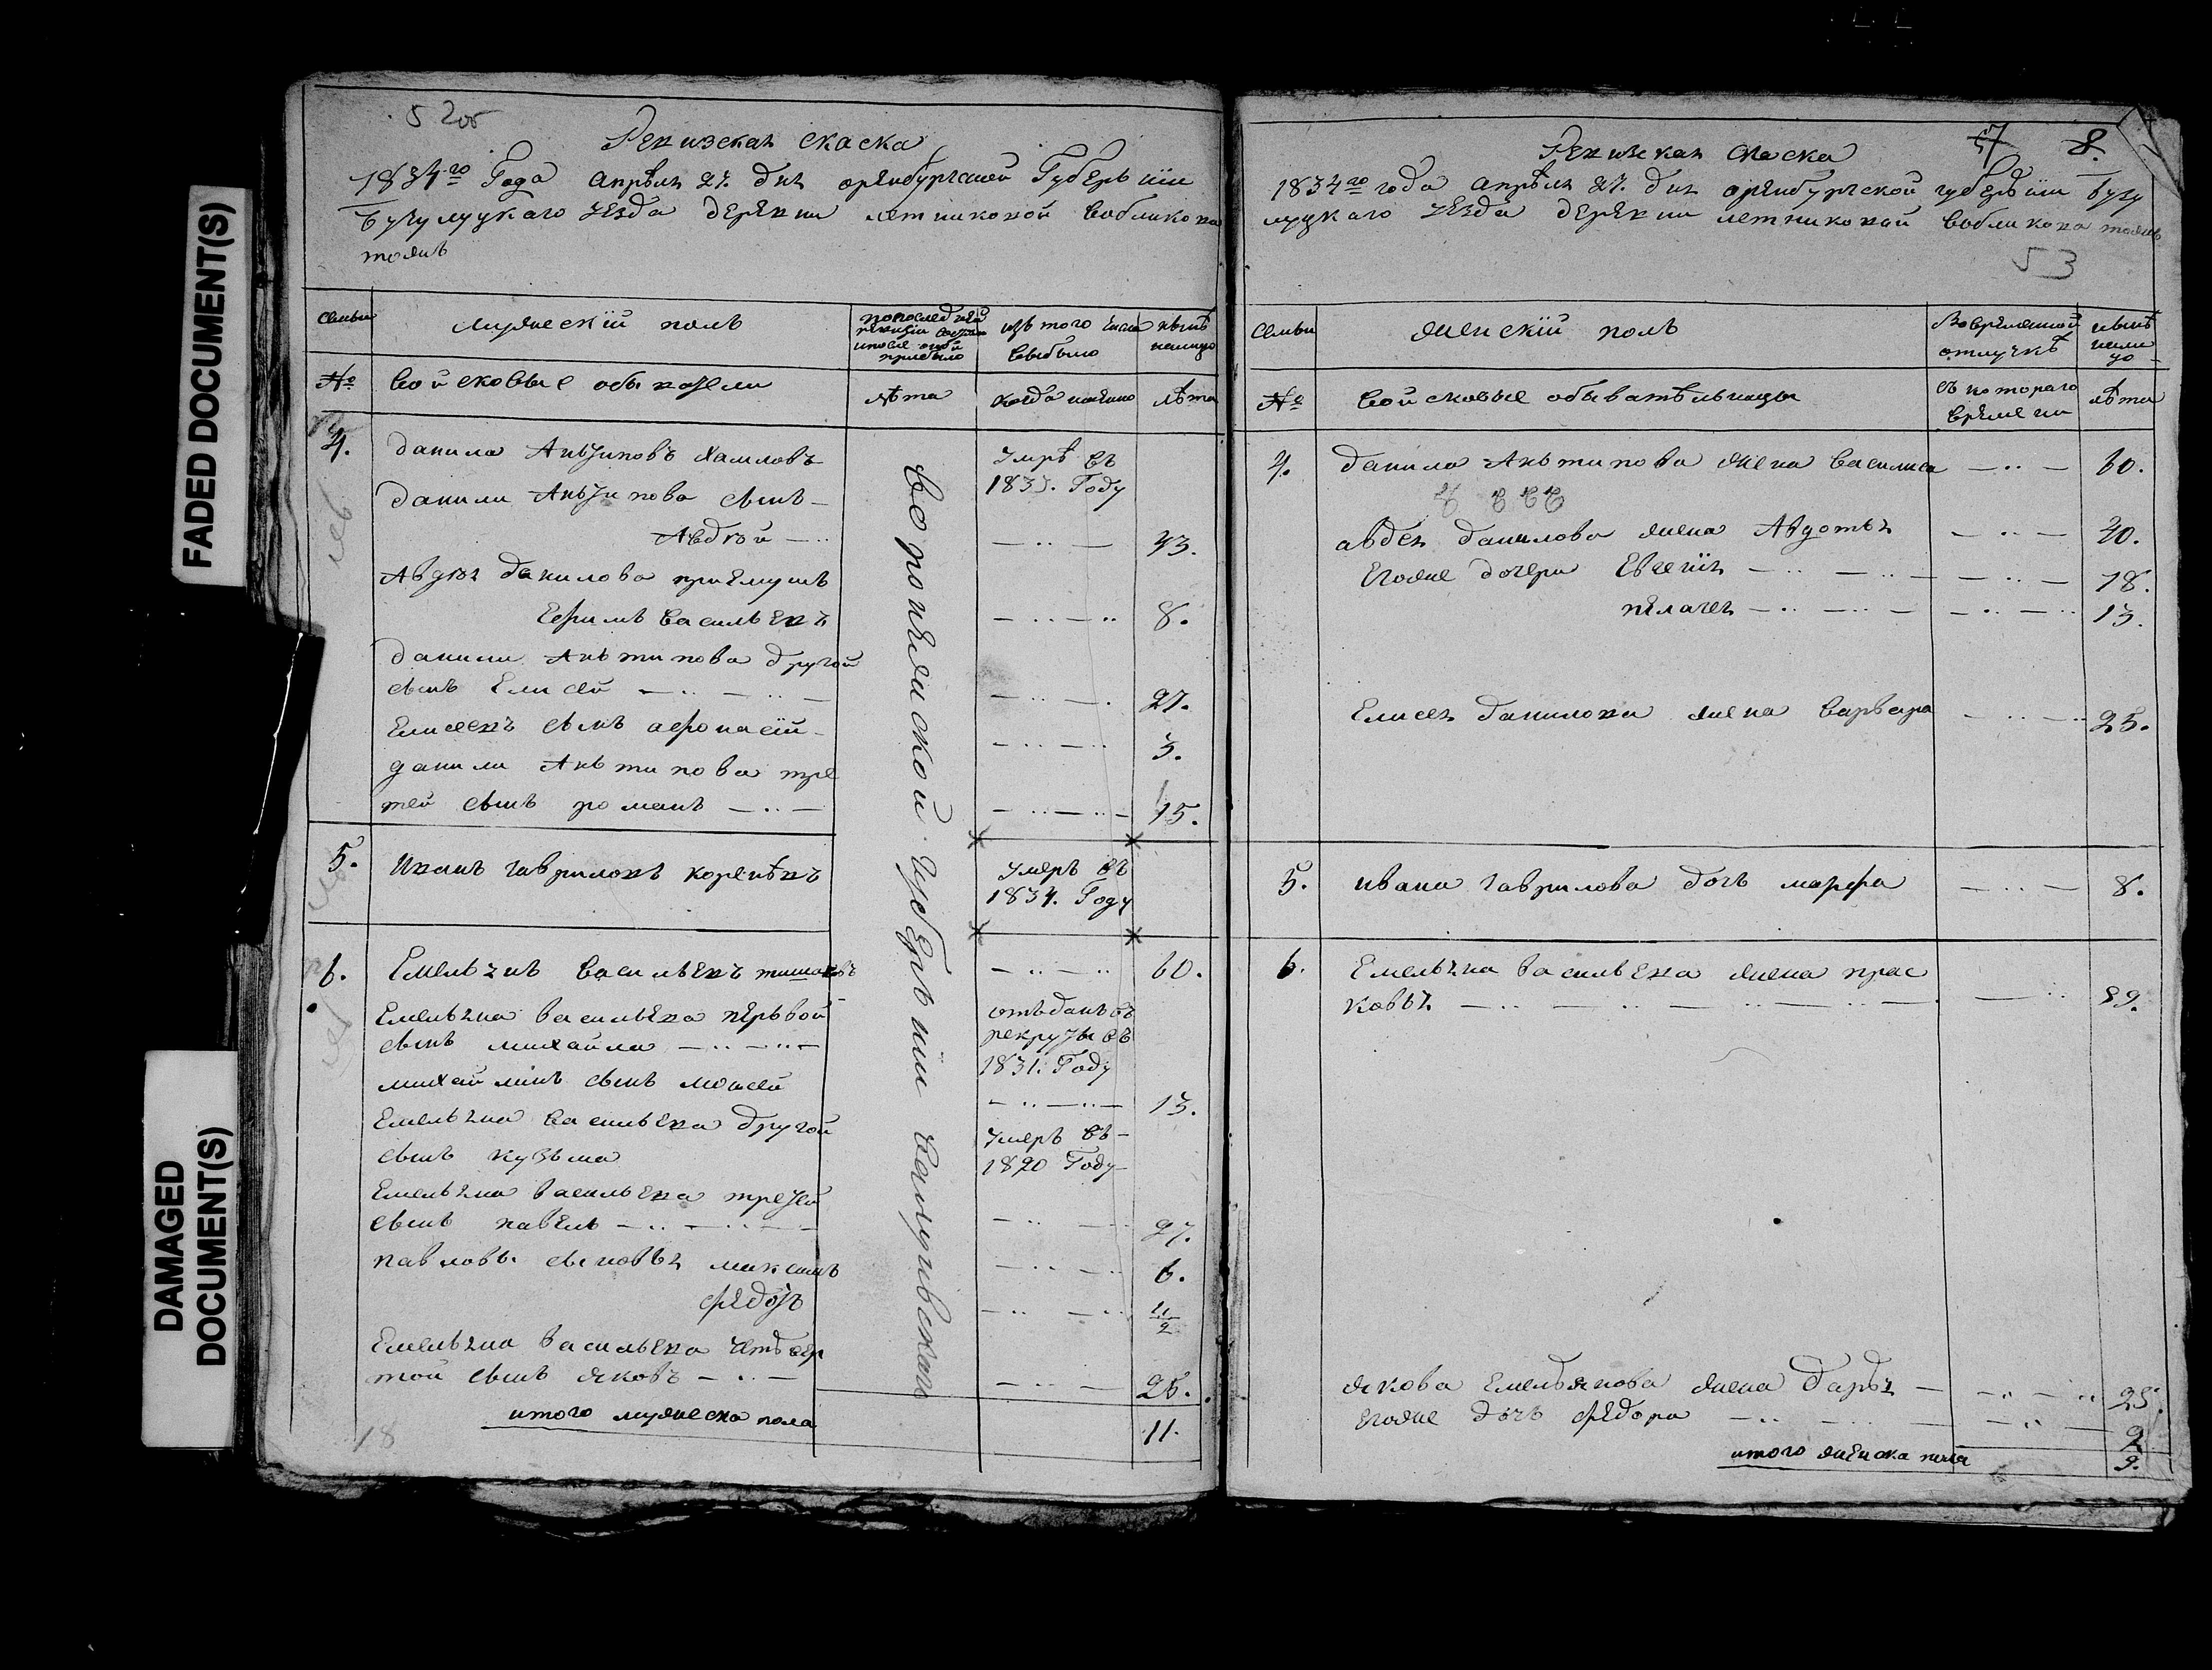 FADED DOCUMENT(S)
DAMAGED
DOCUMENT(S)
52об
Ревизская скаска
1834го Года апрѣля 27. дня оренбургской Губернии
Бузулуцкаго уезда деревни летниковой
тожъ
семьи
мужескій полъ
изъ того числа
выбыло
нынѣ
налицо
№
войсковые обыватели
лѣта
когда имянно
лѣта
4.
данило Антиповъ
Умре въ
183 . Году
данилы Антипова сынъ
Авдей
43.
Авдея данилова приемышъ
Ефимъ васильевъ
8.
данилы Антипова другой
сынъ Елисей
27.
Елисеевъ сынъ афонасій
3.
данилы Антипова тре
тей сынъ романъ
15.
5.
Иванъ гавриловъ
Умеръ въ
1834. Году
6.
Емельянъ васильевъ
60.
Емельяна васильева первой
сынъ михайла
отъданъ въ
рекруты въ
1831. Году
михайлинъ сынъ мосей
13.
Емельяна васильева другой
сынъ кузьма
Умеръ въ
1820 Году
Емельяна васильева третей
сынъ павелъ
27.
павловы сыновья максимъ
6.
федотъ
Емельяна васильева четвер
той сынъ яковъ
25.
итого мужеска пола
11.
18
воронежской губернии
Ревизская скаска
8.
1834го года апрѣля 27. дня оренбургской губернии бузу
луцкаго уезда деревни летниковой тожъ
53
семьи
женскій полъ
Вовременной
отлучкѣ
нынѣ
нали
цо
№
войсковые обывательницы
съ котораго
времени
лѣта
4.
данила Антипова жена василиса
60.
авдея данилова жена Авдотья
40.
Егоже дочери Евгения
18.
пелагея
13.
Елисея данилова жена варвара
25.
5.
ивана гаврилова дочь марфа
8.
6.
Емельяна васильева жена прас
ковья
59.
якова емельянова жена дарья
25.
егоже дочь федора
2
итого женска пола
9.